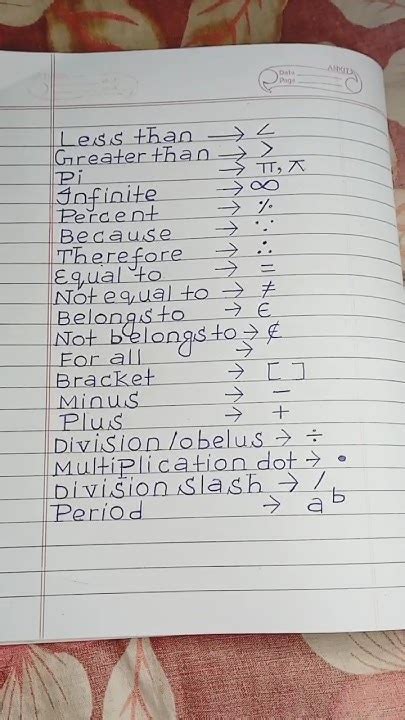 ANKIT
Date
Page
Less than → <
Greater than → >
Pi → π, ㅠ
Infinite → ∞
Percent → %
Because → ∵
Therefore → ∴
Equal to → =
Not equal to → ≠
Belongs to → ∈
Not belongs to → ∉
For all →
Bracket → [ ]
Minus → −
Plus → +
Division/obelus → ÷
Multiplication dot → •
Division slash → /
Period → aᵇ